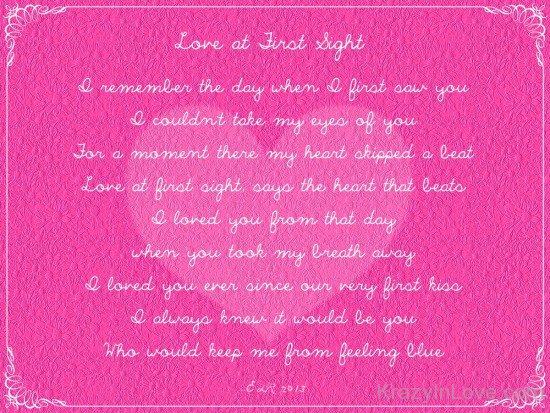 Love at First Sight
I remember the day when I first saw you
I couldn't take my eyes of you
For a moment there my heart skipped a beat
Love at first sight, says the heart that beats
I loved you from that day
when you took my breath away
I loved you ever since our very first kiss
I always knew it would be you
Who would keep me from feeling blue
2013
KrazyInLove.com